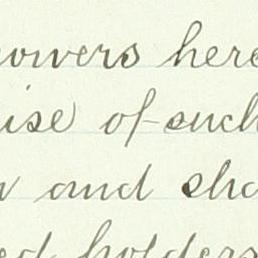 owers here
ise of such
and sha
ed holders